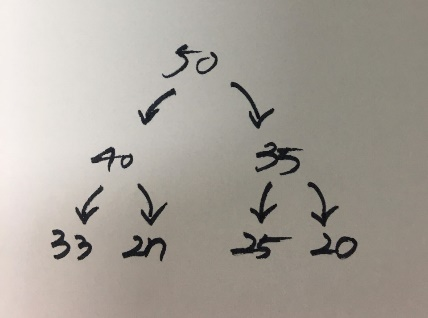 50
40 35
33 2n 25 20